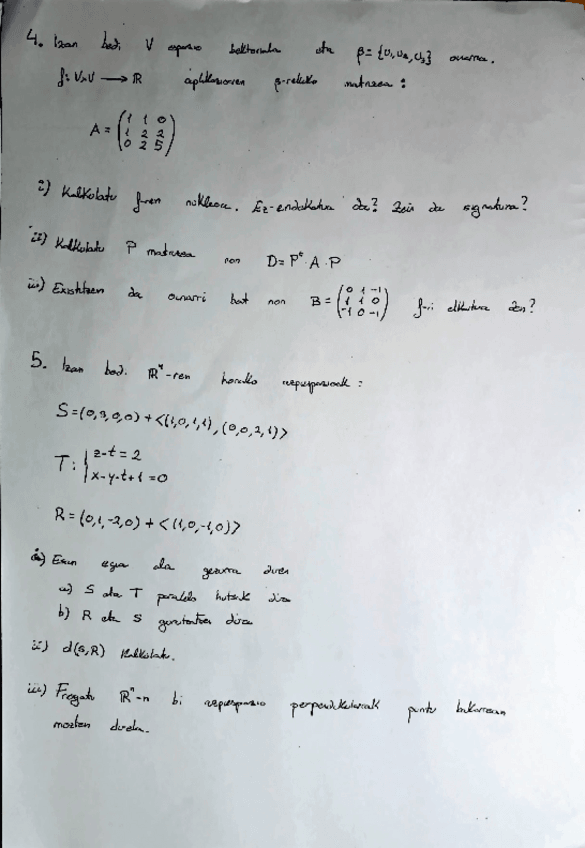 4. Izan bedi V espazio bektoriala eta β = {u₁, u₂, u₃} oinarria.
f: V×V → R aplikazioaren β-rekiko matrizea:
A = (1 1 0
1 2 2
0 2 5)
i) Kalkulatu f-ren nukleoa. Ez-endakatua da? Zein da signatura?
ii) Kalkulatu P matrizea non D = Pᵗ · A · P
iii) Existitzen da oinarri bat non B = (0 1 -1
1 1 0
-1 0 -1) f-ri elkartua den?
5. Izan bedi R⁴-ren honako azpiespazioak:
S = (0, 3, 0, 0) + <(1, 0, 1, 1), (0, 0, 2, 1)>
T: { z - t = 2
x - y - t + 1 = 0
R = (0, 1, -2, 0) + <(1, 0, -1, 0)>
i) Esan egia ala gezurra diren
a) S eta T paralelo hutsak dira
b) R eta S gurutzatzen dira
ii) d(S, R) kalkulatu.
iii) Frogatu Rⁿ-n bi azpiespazio perpendikularrak puntu bakarrean
mozten direla.